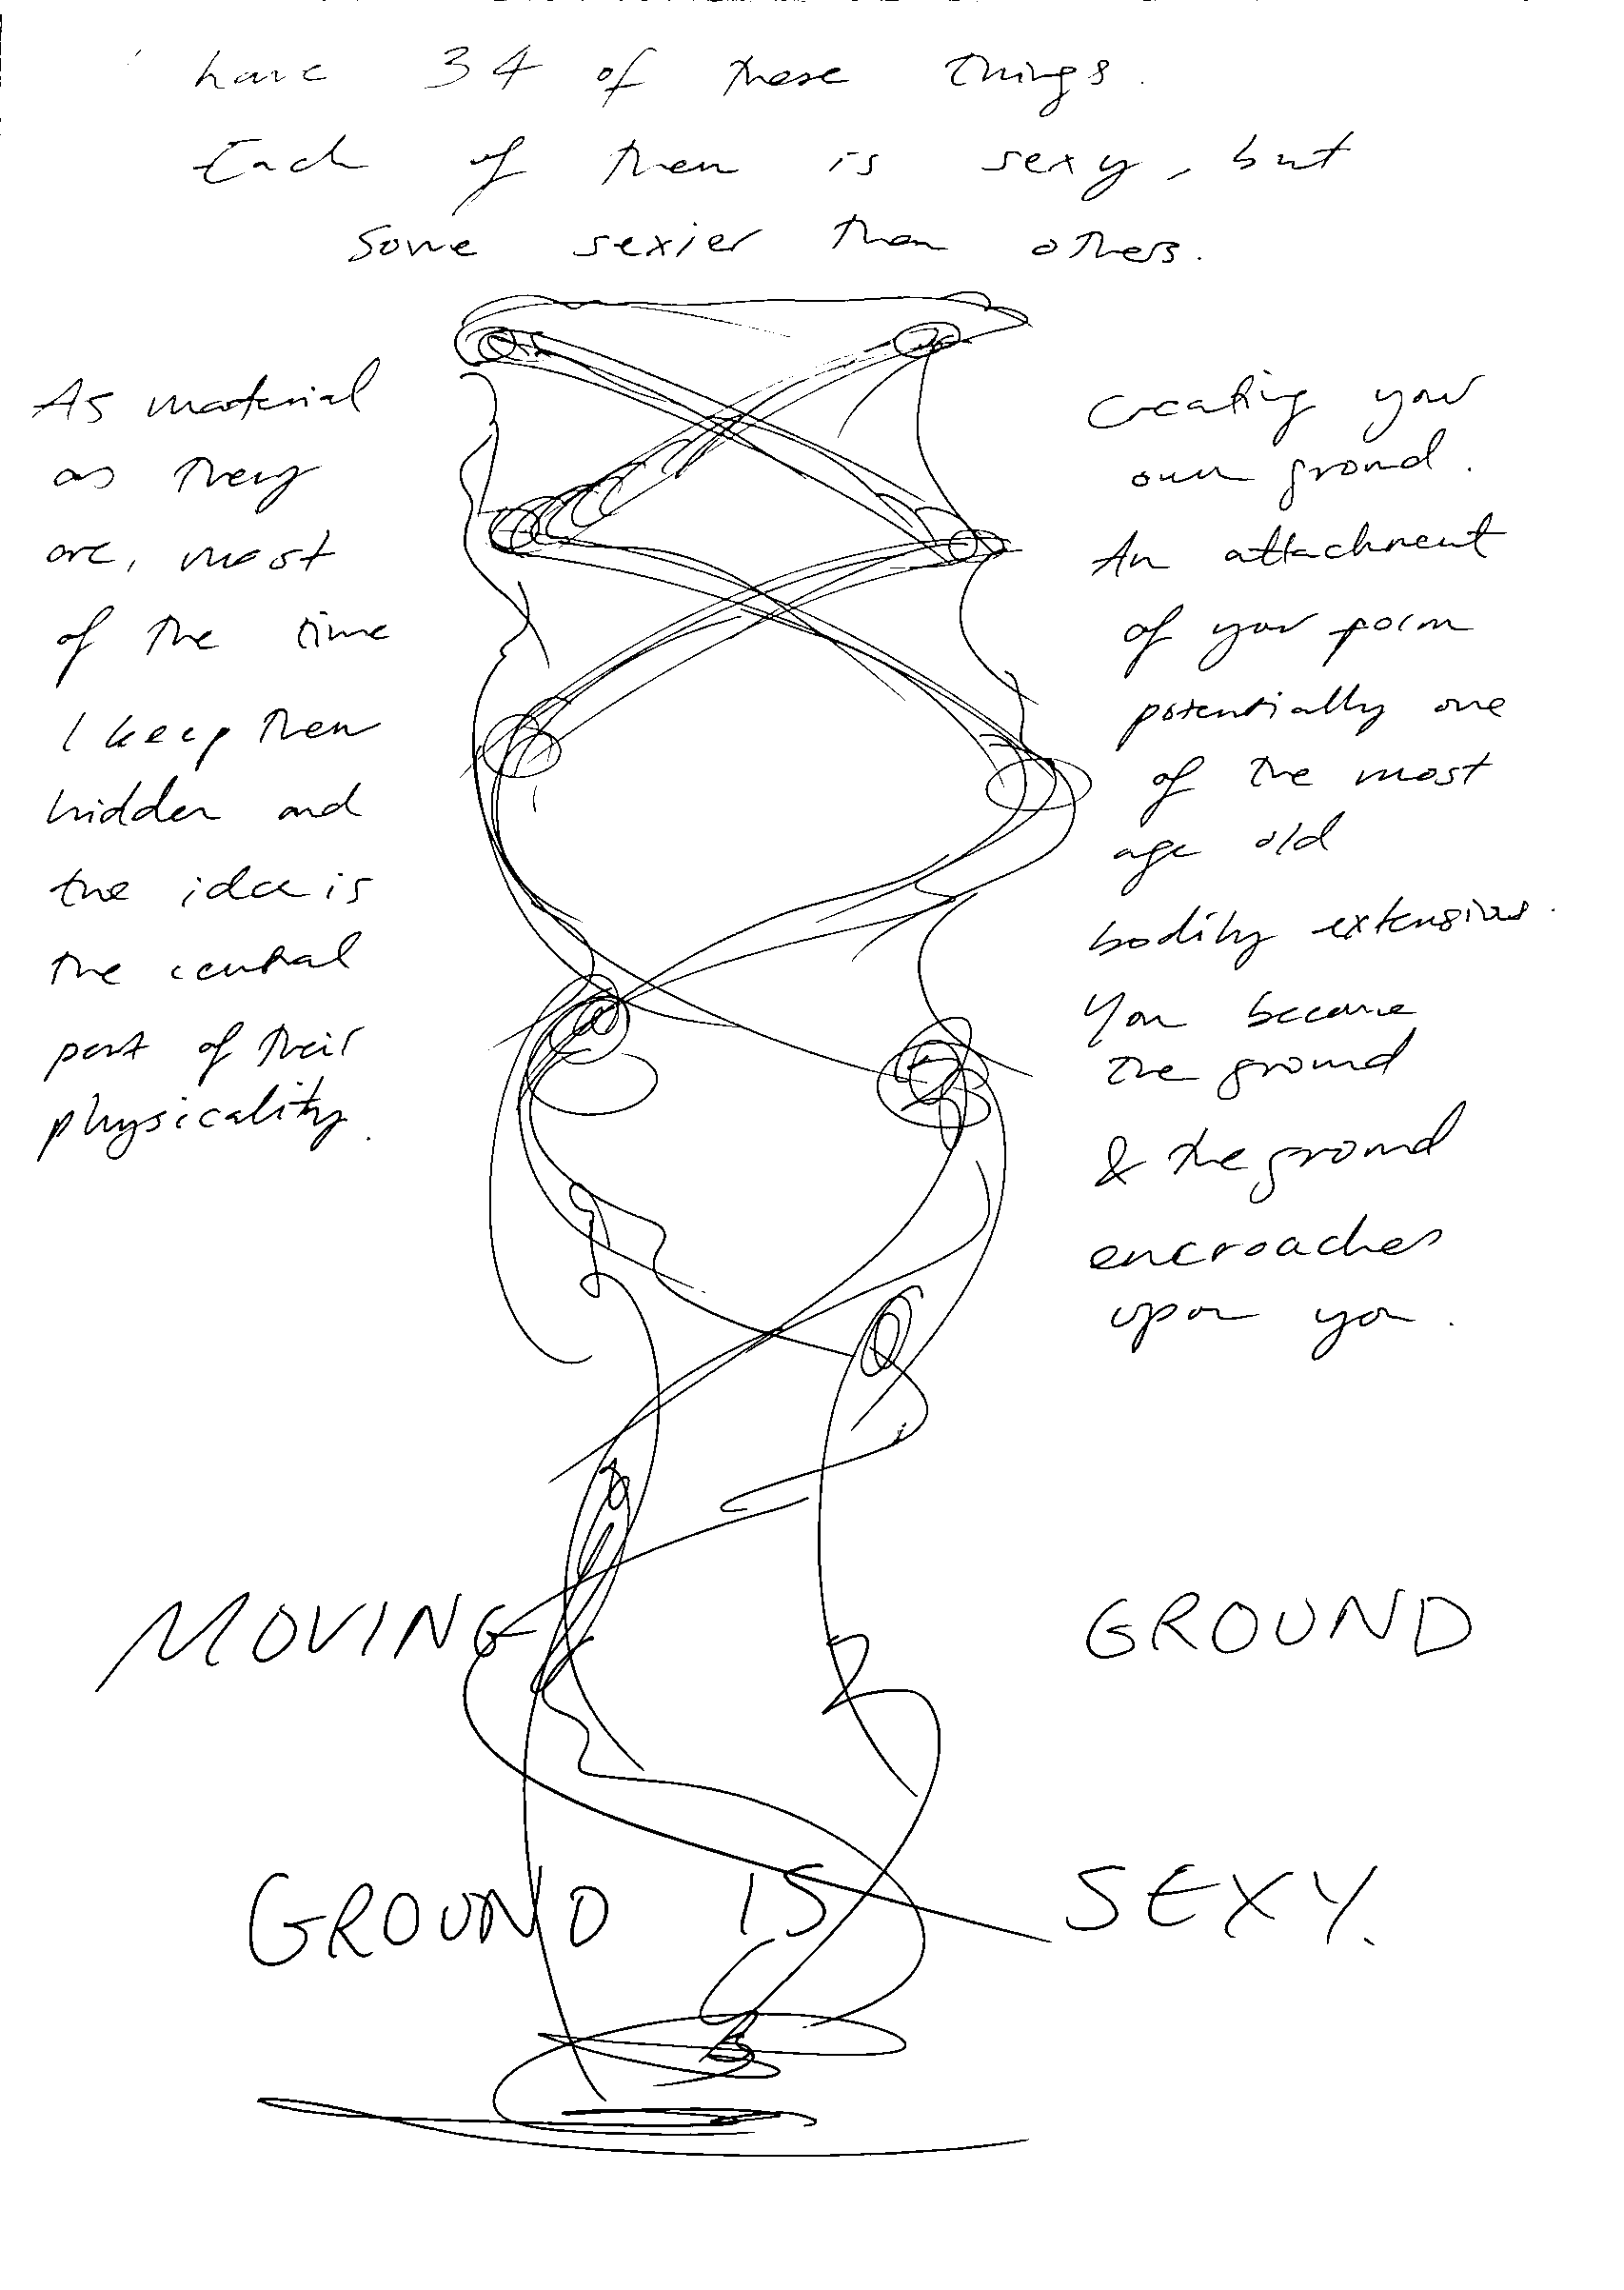 have 34 of these things.
Each of them is sexy, but
some sexier than others.
As material
as they
are, most
of the time
I keep them
hidden and
the idea is
the central
part of their
physicality.
Creating your
own ground.
An attachment
of your form
potentially one
of the most
age old
bodily extensions.
You become
the ground
& the ground
encroaches
upon you.
MOVING GROUND
GROUND IS SEXY.